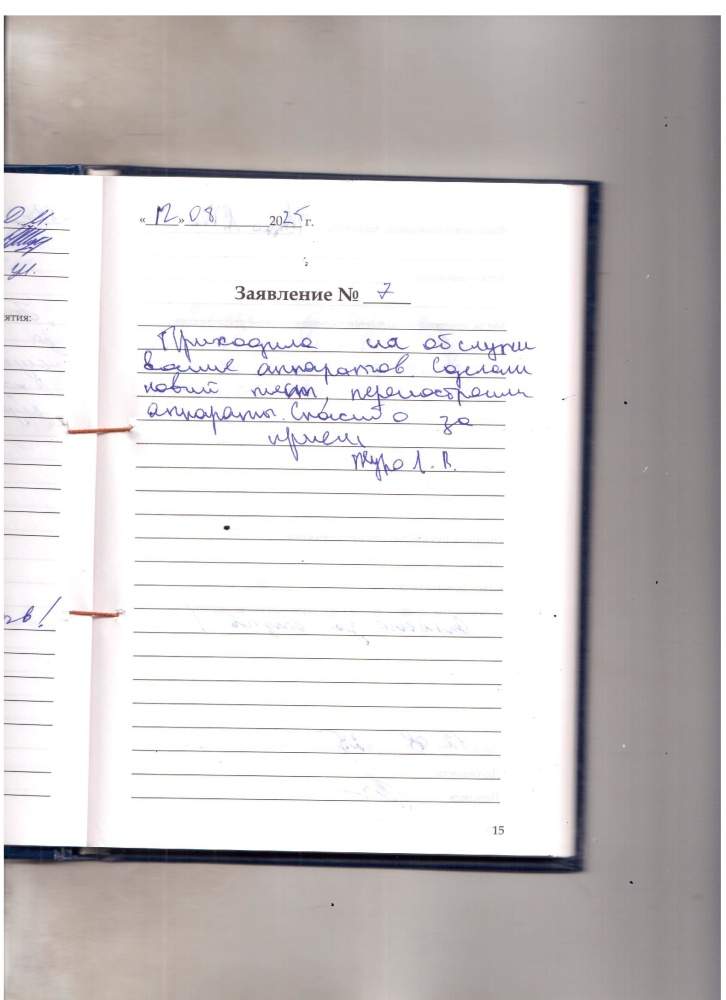 О.И.
ул.
ятия:
ов!
«12» 08 2025 г.
Заявление № 7
Приходила на обслужи
вание аппаратов. Сделали
новый тест, перенастроили
аппараты. Спасибо за
прием
Л. В.
15